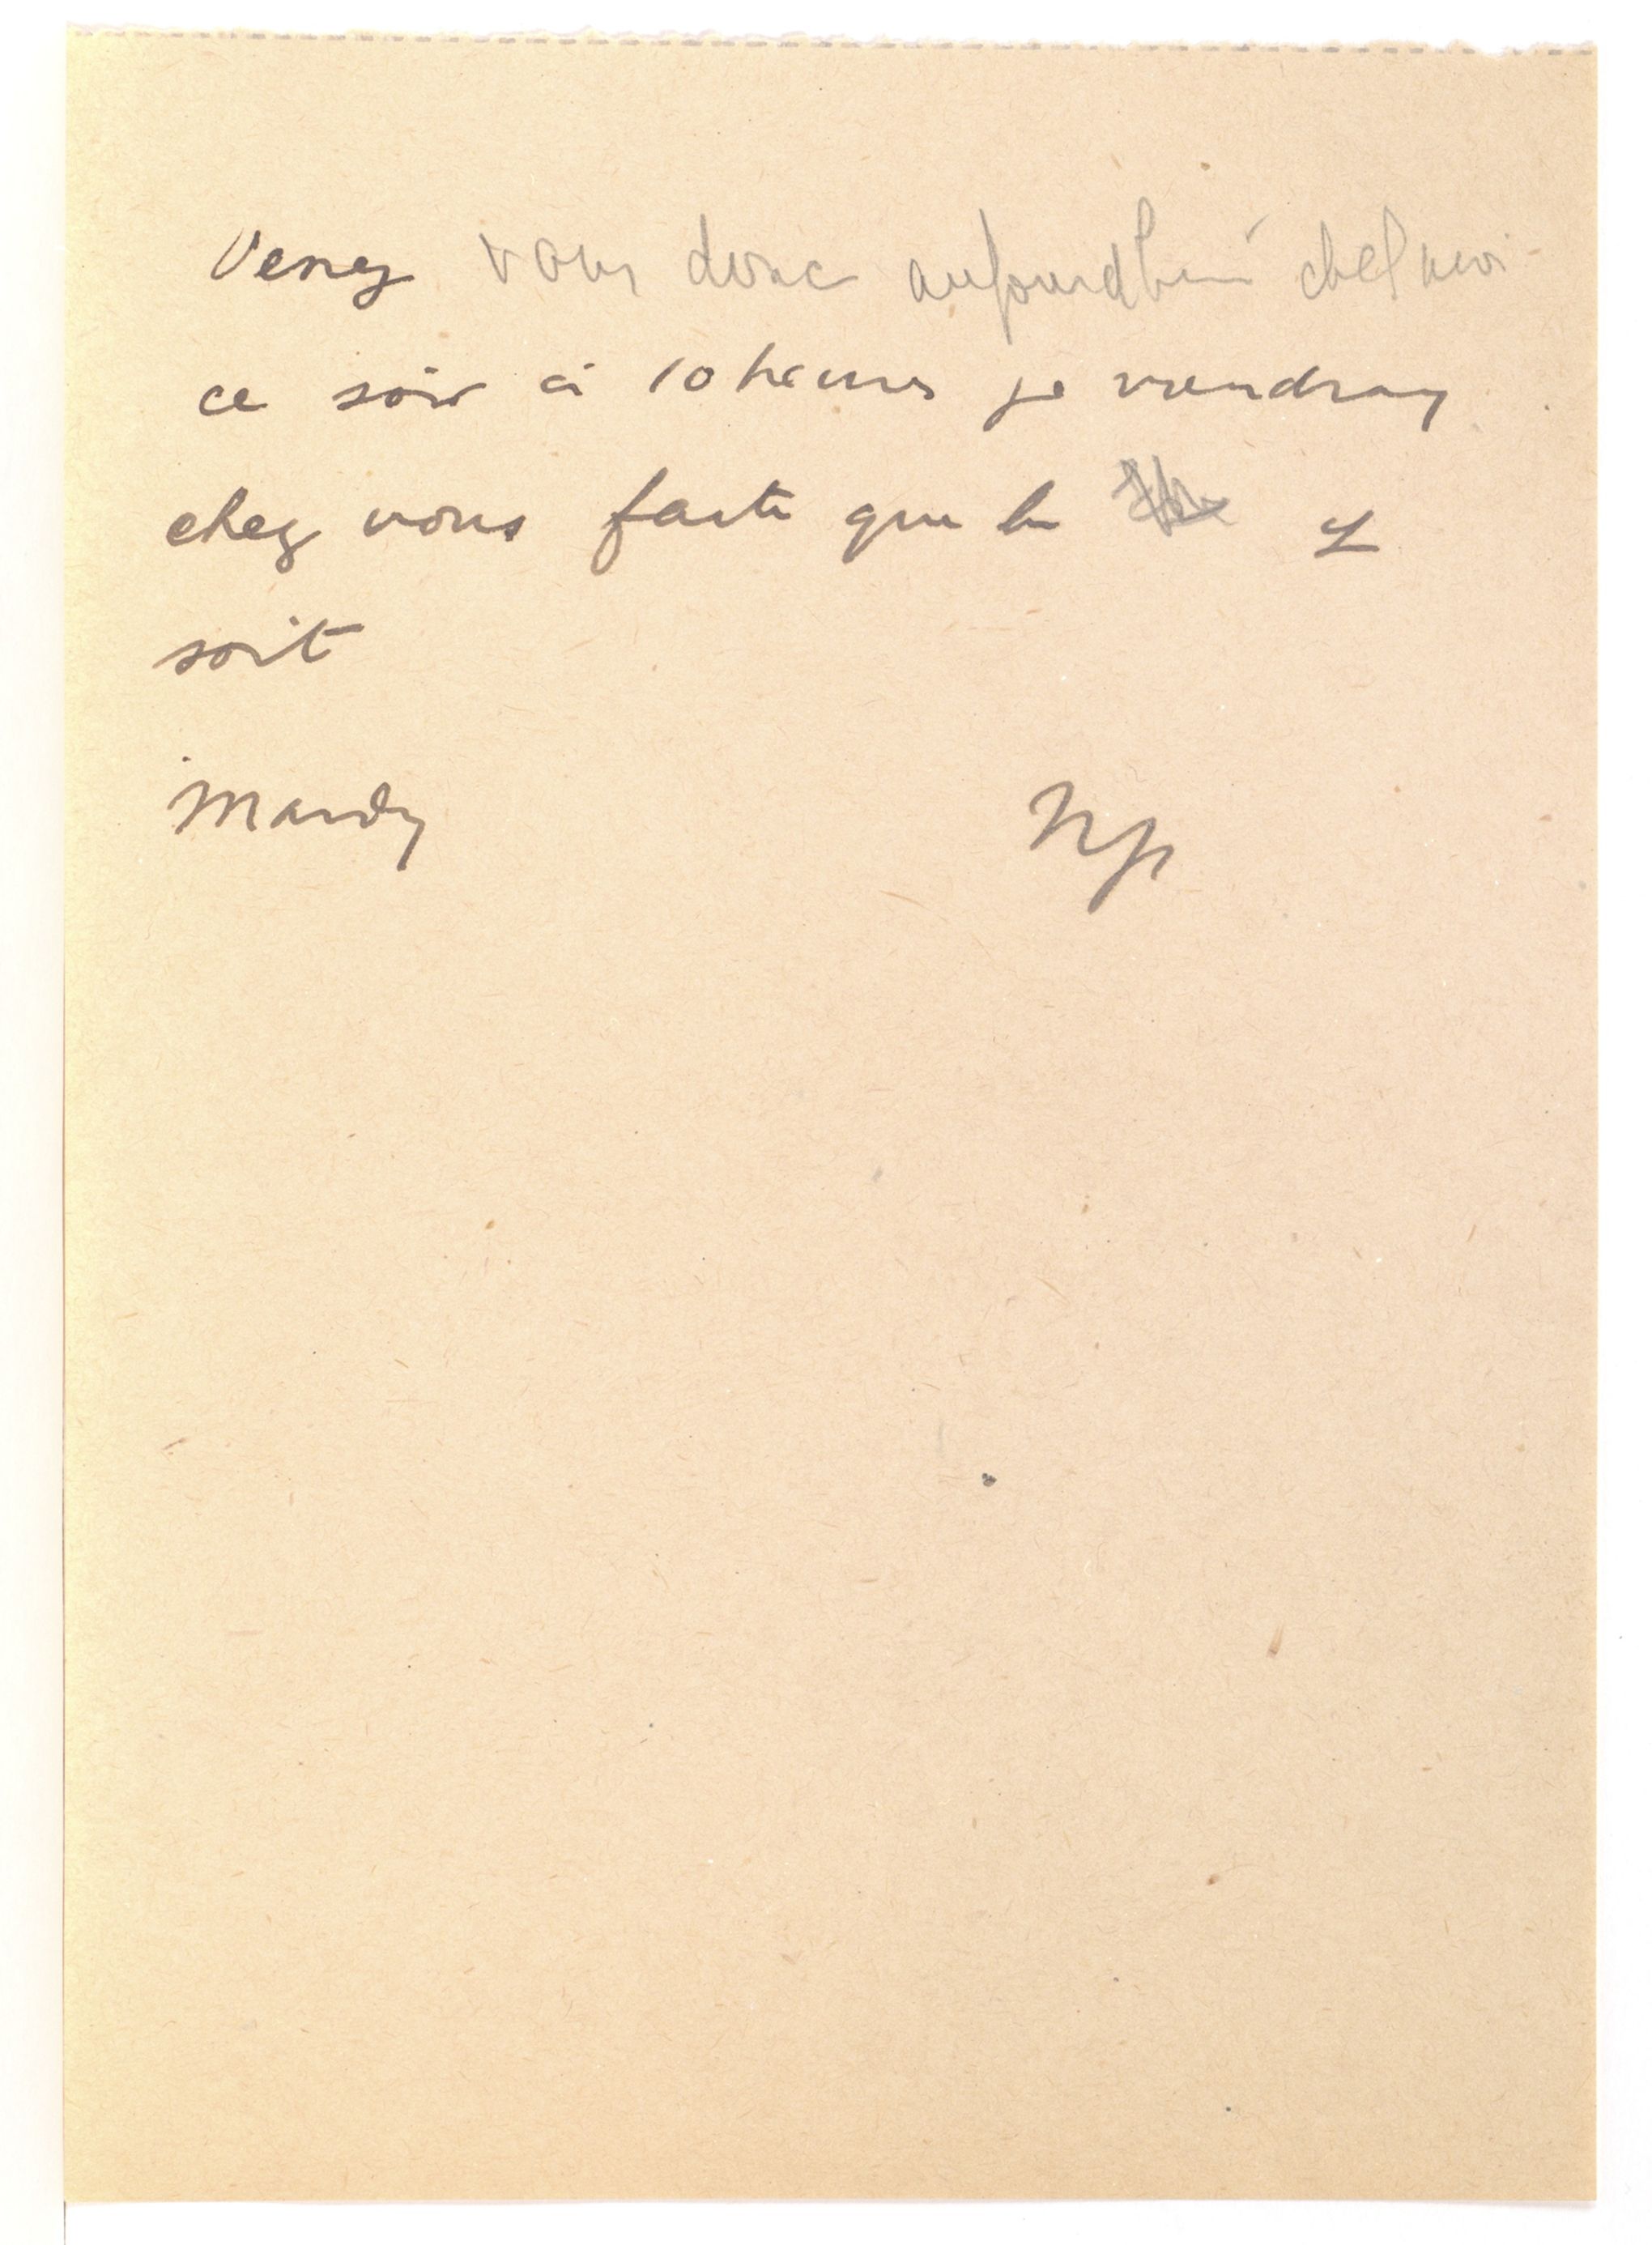 Venez vous donc aujourd'hui chez moi
ce soir à 10 heures je viendray
chez vous faite que le y
soit
Mardy Np